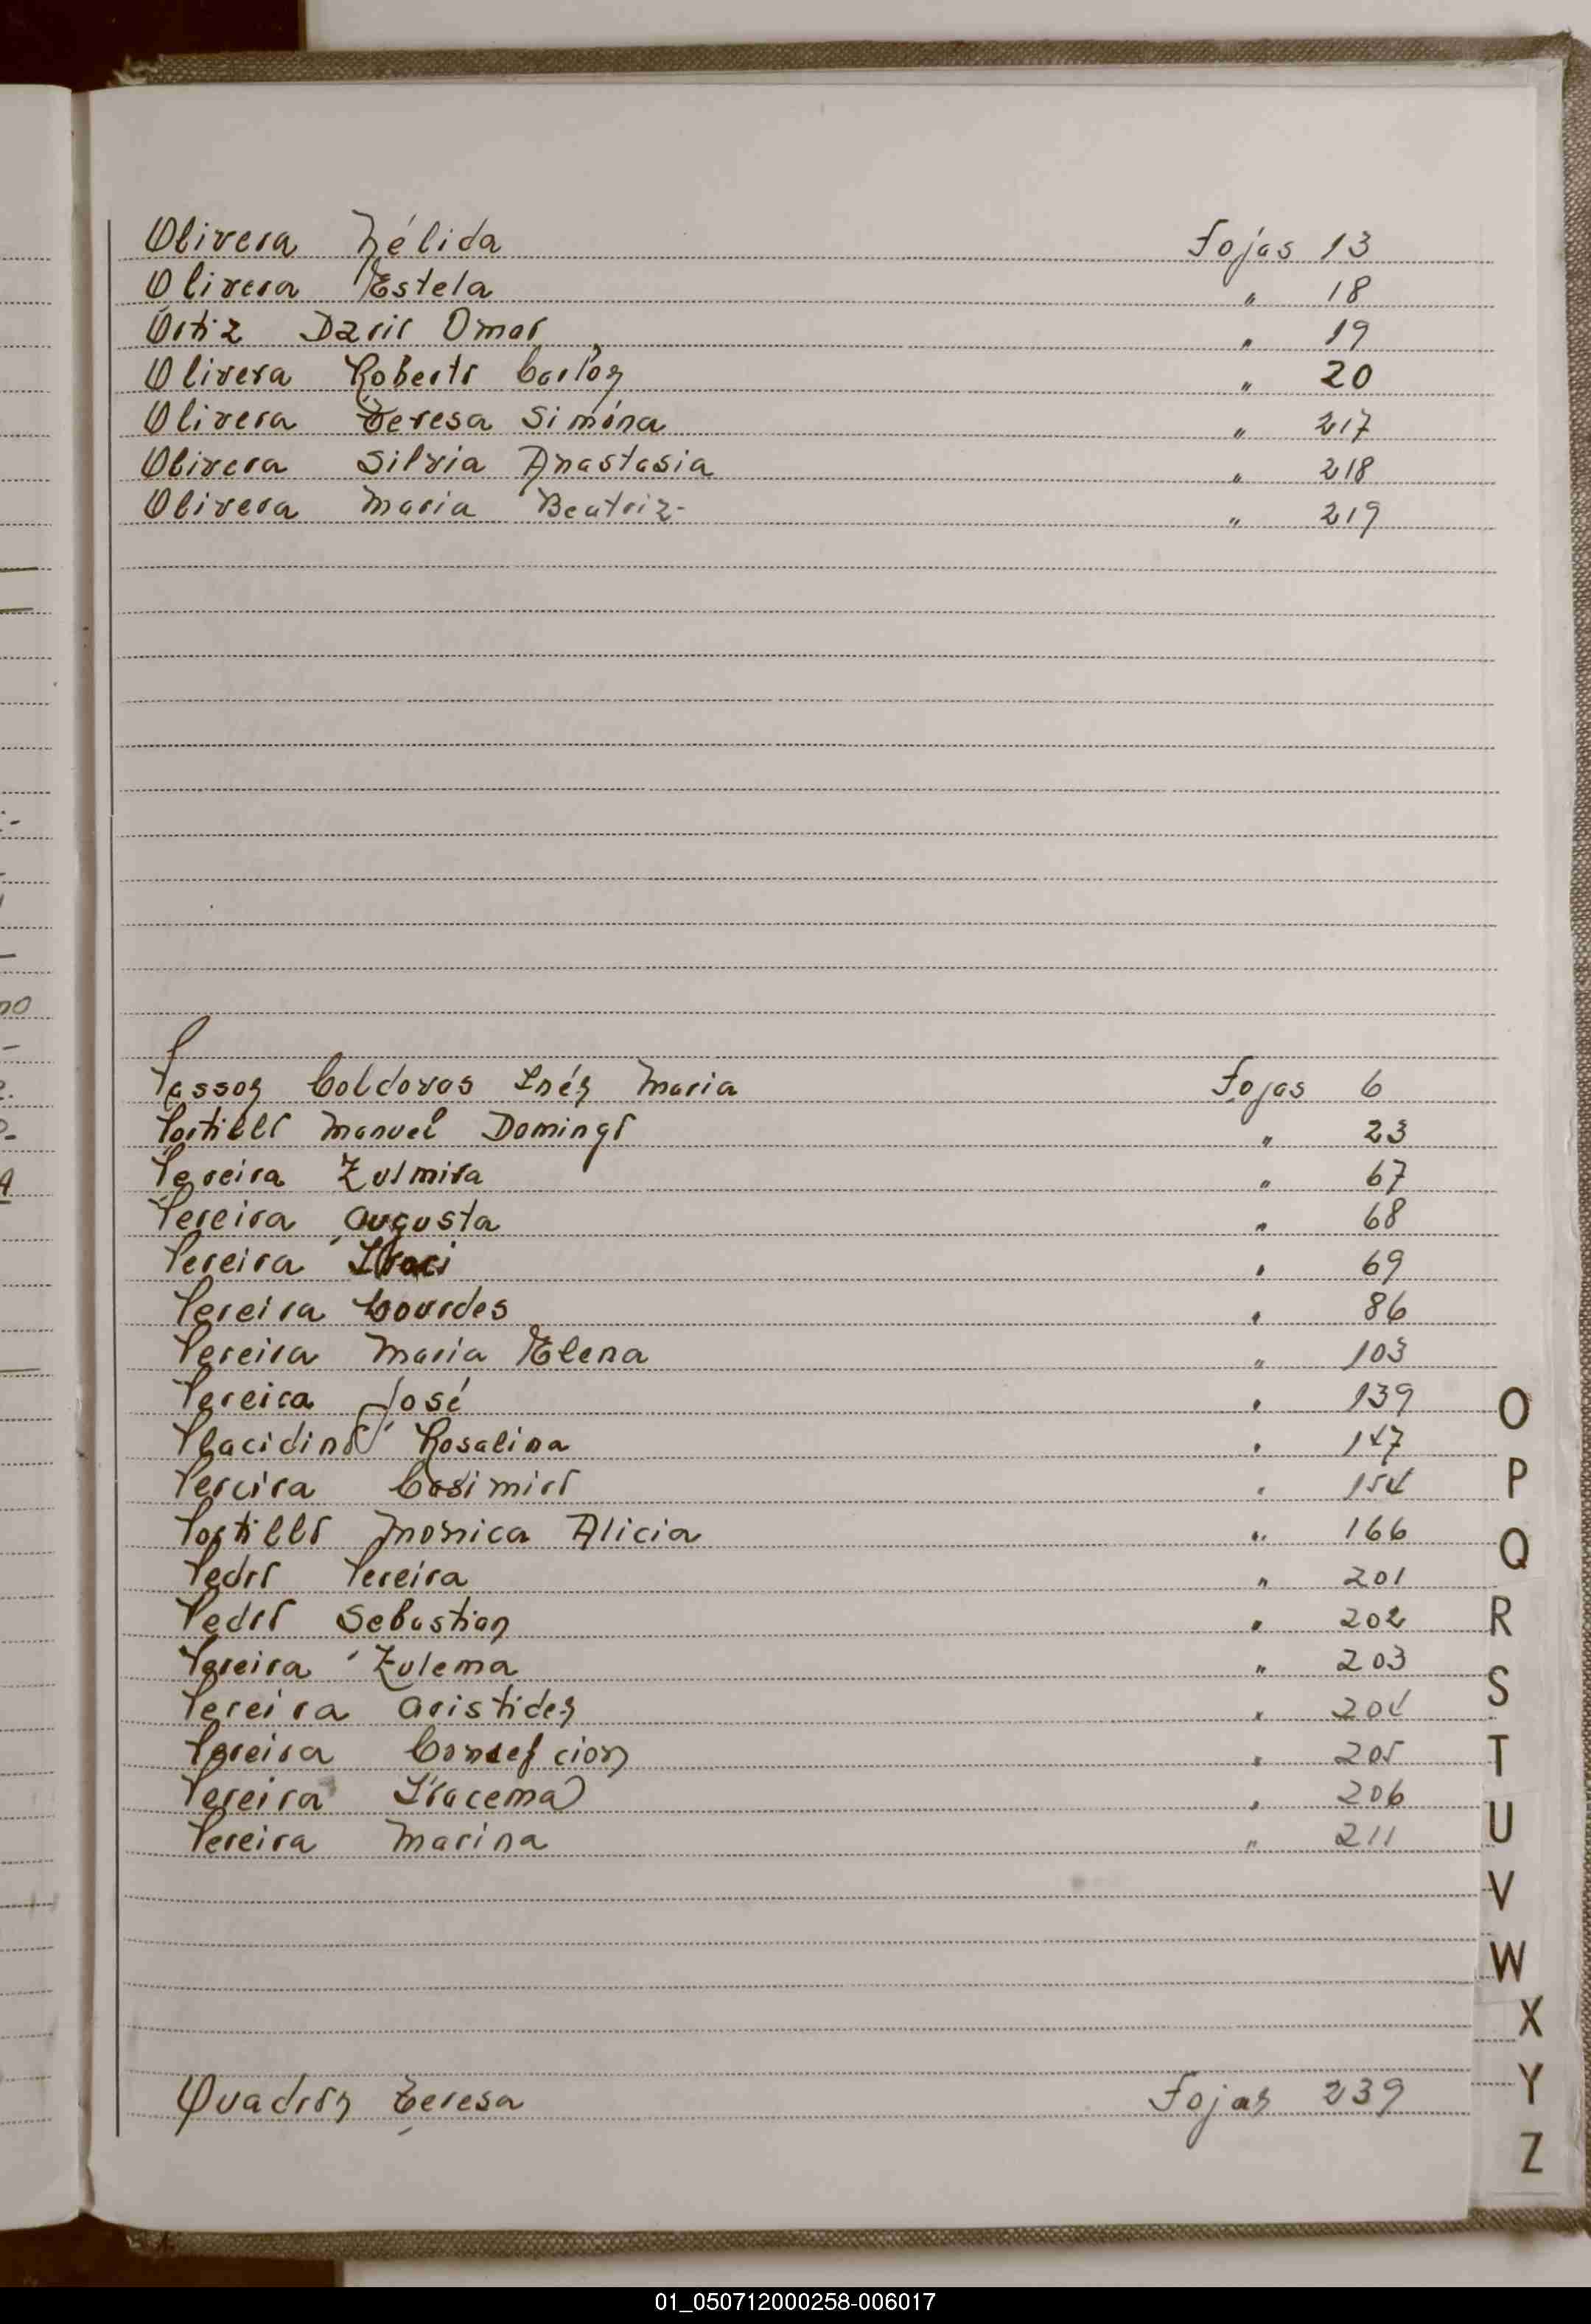 Olivera Nélida Fojas 13
Olivera Estela " 18
Ortiz Dario Omar " 19
Olivera Roberto Carlos " 20
Olivera Teresa Simona " 217
Olivera Silvia Anastasia " 218
Olivera Maria Beatriz- " 219
Passos Coldovas Inés Maria Fojas 6
Portillo Manuel Domingo " 23
Pereira Zulmira " 67
Pereira Augusta " 68
Pereira " 69
Pereira Lourdes " 86
Pereira Maria Elena " 103
Pereira José " 139
Placidino Rosalina " 147
Pereira Casimiro " 154
Portillo Monica Alicia " 166
Pedro Pereira " 201
Pedro Sebastian " 202
Pereira Zulema " 203
Pereira Aristides " 204
Pereira " 205
Pereira Iracema " 206
Pereira Marina " 211
Quadros Teresa Fojas 239
O
P
Q
R
S
T
U
V
W
X
Y
Z
01_050712000258-006017